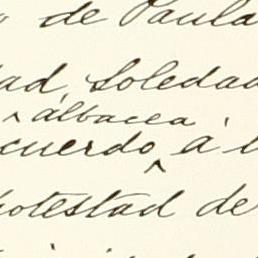 de Paula
Soledad
albacea
cuerdo á
potestad de